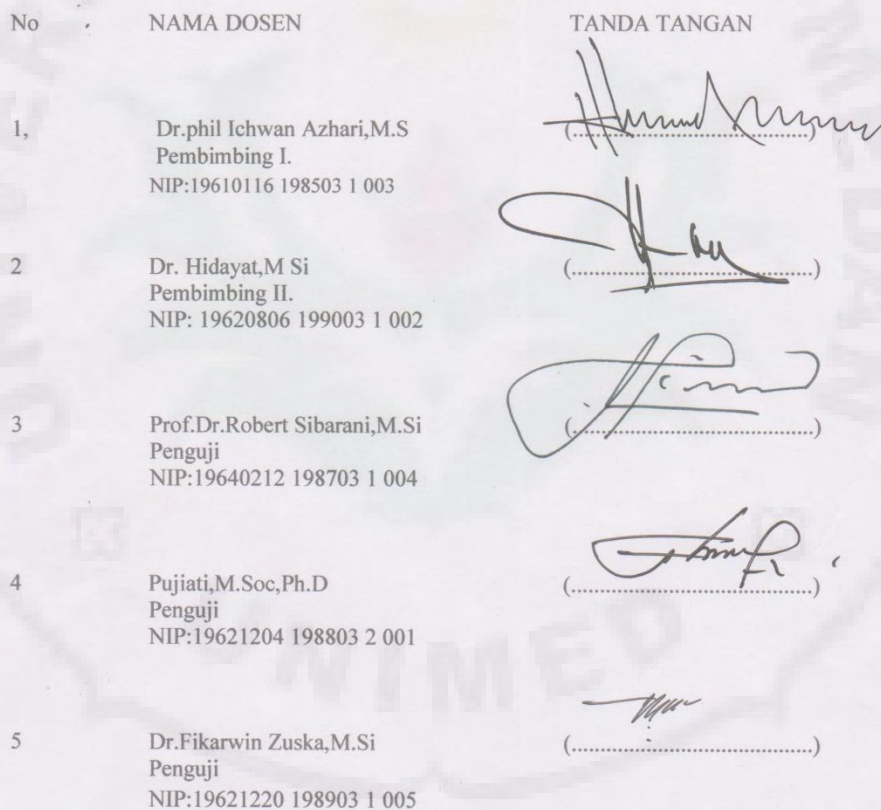 No NAMA DOSEN TANDA TANGAN
1, Dr.phil Ichwan Azhari,M.S (....................................)
Pembimbing I.
NIP:19610116 198503 1 003
2 Dr. Hidayat,M Si (....................................)
Pembimbing II.
NIP: 19620806 199003 1 002
3 Prof.Dr.Robert Sibarani,M.Si (....................................)
Penguji
NIP:19640212 198703 1 004
4 Pujiati,M.Soc,Ph.D (....................................)
Penguji
NIP:19621204 198803 2 001
UNIMED
5 Dr.Fikarwin Zuska,M.Si (....................................)
Penguji
NIP:19621220 198903 1 005